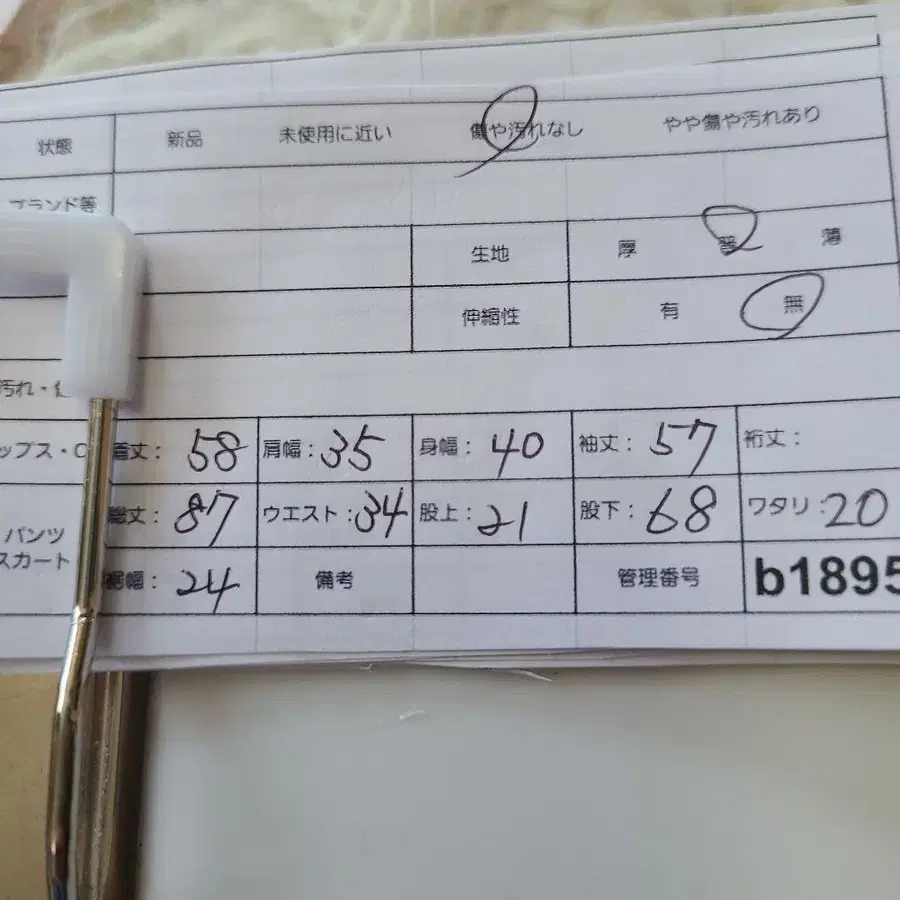 状態 新品 未使用に近い 傷や汚れなし やや傷や汚れあり
ブランド等
生地 厚 普 薄
伸縮性 有 無
汚れ・
ップス・ 着丈: 58 肩幅: 35 身幅: 40 袖丈: 57 裄丈:
パンツ
スカート
総丈: 87 ウエスト: 34 股上: 21 股下: 68 ワタリ: 20
裾幅: 24 備考 管理番号 b1895